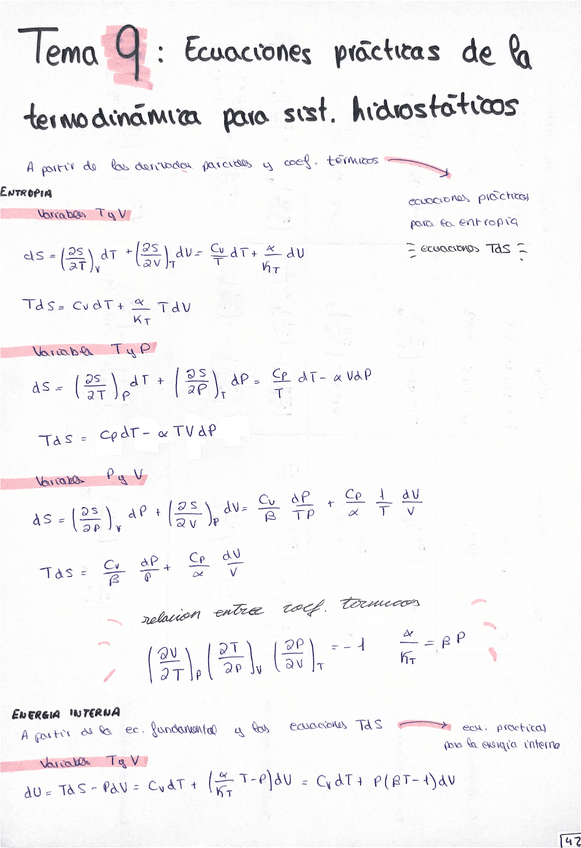 Tema 9: Ecuaciones prácticas de la
termodinámica para sist. hidrostáticos
A partir de las derivadas parciales y coef. térmicos →
ecuaciones prácticas
para la entropía
≡ ecuaciones TdS ≡
ENTROPIA
Variables T y V
dS = (∂S/∂T)_V dT + (∂S/∂V)_T dV = Cv/T dT + α/K_T dV
TdS = CvdT + α/K_T TdV
Variables T y P
dS = (∂S/∂T)_P dT + (∂S/∂P)_T dP = Cp/T dT - αVdP
TdS = CpdT - αTVdP
Variables P y V
dS = (∂S/∂P)_V dP + (∂S/∂V)_P dV = Cv/β dP/TP + Cp/α 1/T dV/V
TdS = Cv/β dP/P + Cp/α dV/V
relacion entre coef. termicos
(∂V/∂T)_P (∂T/∂P)_V (∂P/∂V)_T = -1 α/K_T = βP
ENERGIA INTERNA
A partir de la ec. fundamental y las ecuaciones TdS → ecu. practicas
para la energía interna
Variables T y V
dU = TdS - PdV = CvdT + (α/K_T T-P)dV = CvdT + P(βT-1)dV
42